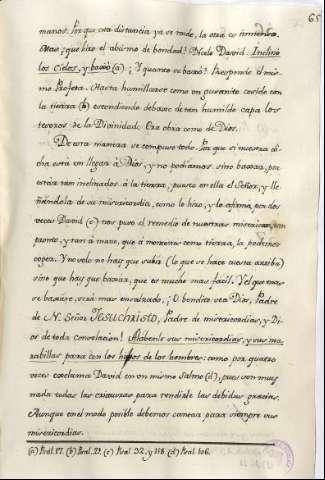 65
manos. Porque esta distancia ya se rinde, la otra es inmensa.
Mas ¿que hizo el abismo de bondad? Dicelo David: Inclinó
los Cielos, y baxó (a). ¿Y quanto se baxó? Responde el mis-
mo Profeta. Hasta humillarse como un gusanito cosido con
la tierra (b) escondiendo debaxo de tan humilde capa los
tesoros de la Divinidad. Era obra como de Dios.
De esta manera se compuso todo. Por que si nuestra di-
cha está en llegar à Dios, y no podiamos sino baxar, por
estar tan inclinados à la tierra, puesto en ella el Señor, y lle-
nándola de su misericordia, como lo hizo, y lo afirma por dos
veces David (c) nos puso el remedio de nuestras miserias tan
pronto, y tan à mano, que à manera como tierra, la podemos
coger. Y no solo no hay que subir (lo que se hace cuesta arriba)
sino que hay que baxar, que es mucho mas facil. Y el que mas
se baxare, será mas ensalzado. ¡O bendito sea Dios, Padre
de N. Señor Jesuchristo, Padre de misericordias, y Di-
os de toda consolacion! Alabenle sus misericordias, y sus ma-
rabillas para con los hijos de los hombres: como por quatro
veces exclama David en un mismo Salmo (d), pues son muy
nada todas las criaturas para rendirle las debidas gracias.
Aunque en el modo posible debemos cantar para siempre sus
misericordias.
(a) Psal. 17. (b) Psal. 21. (c) Psal. 32. y 118. (d) Psal. 106.